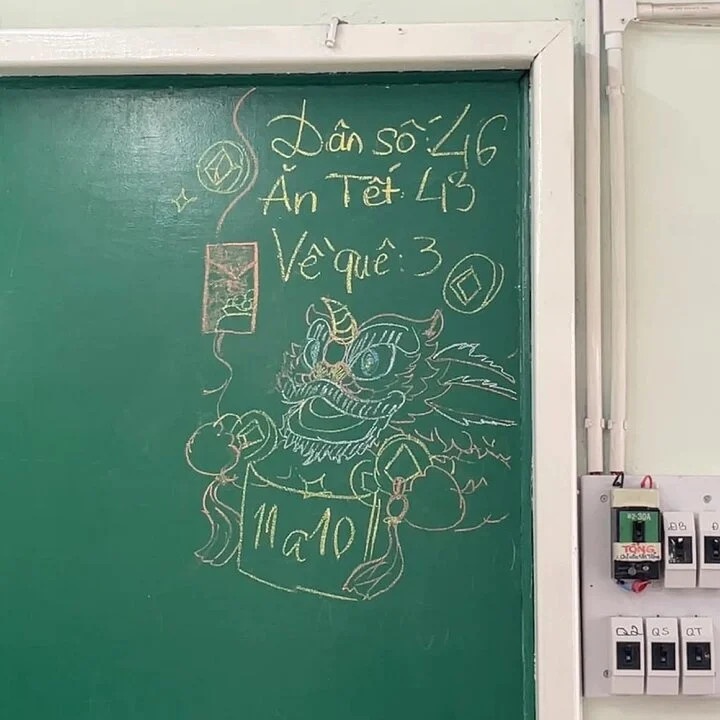 Dân số: 46
Ăn Tết: 43
Về quê: 3
11a10
#2-30A
TỔNG
ĐB
Q2
QS
QT